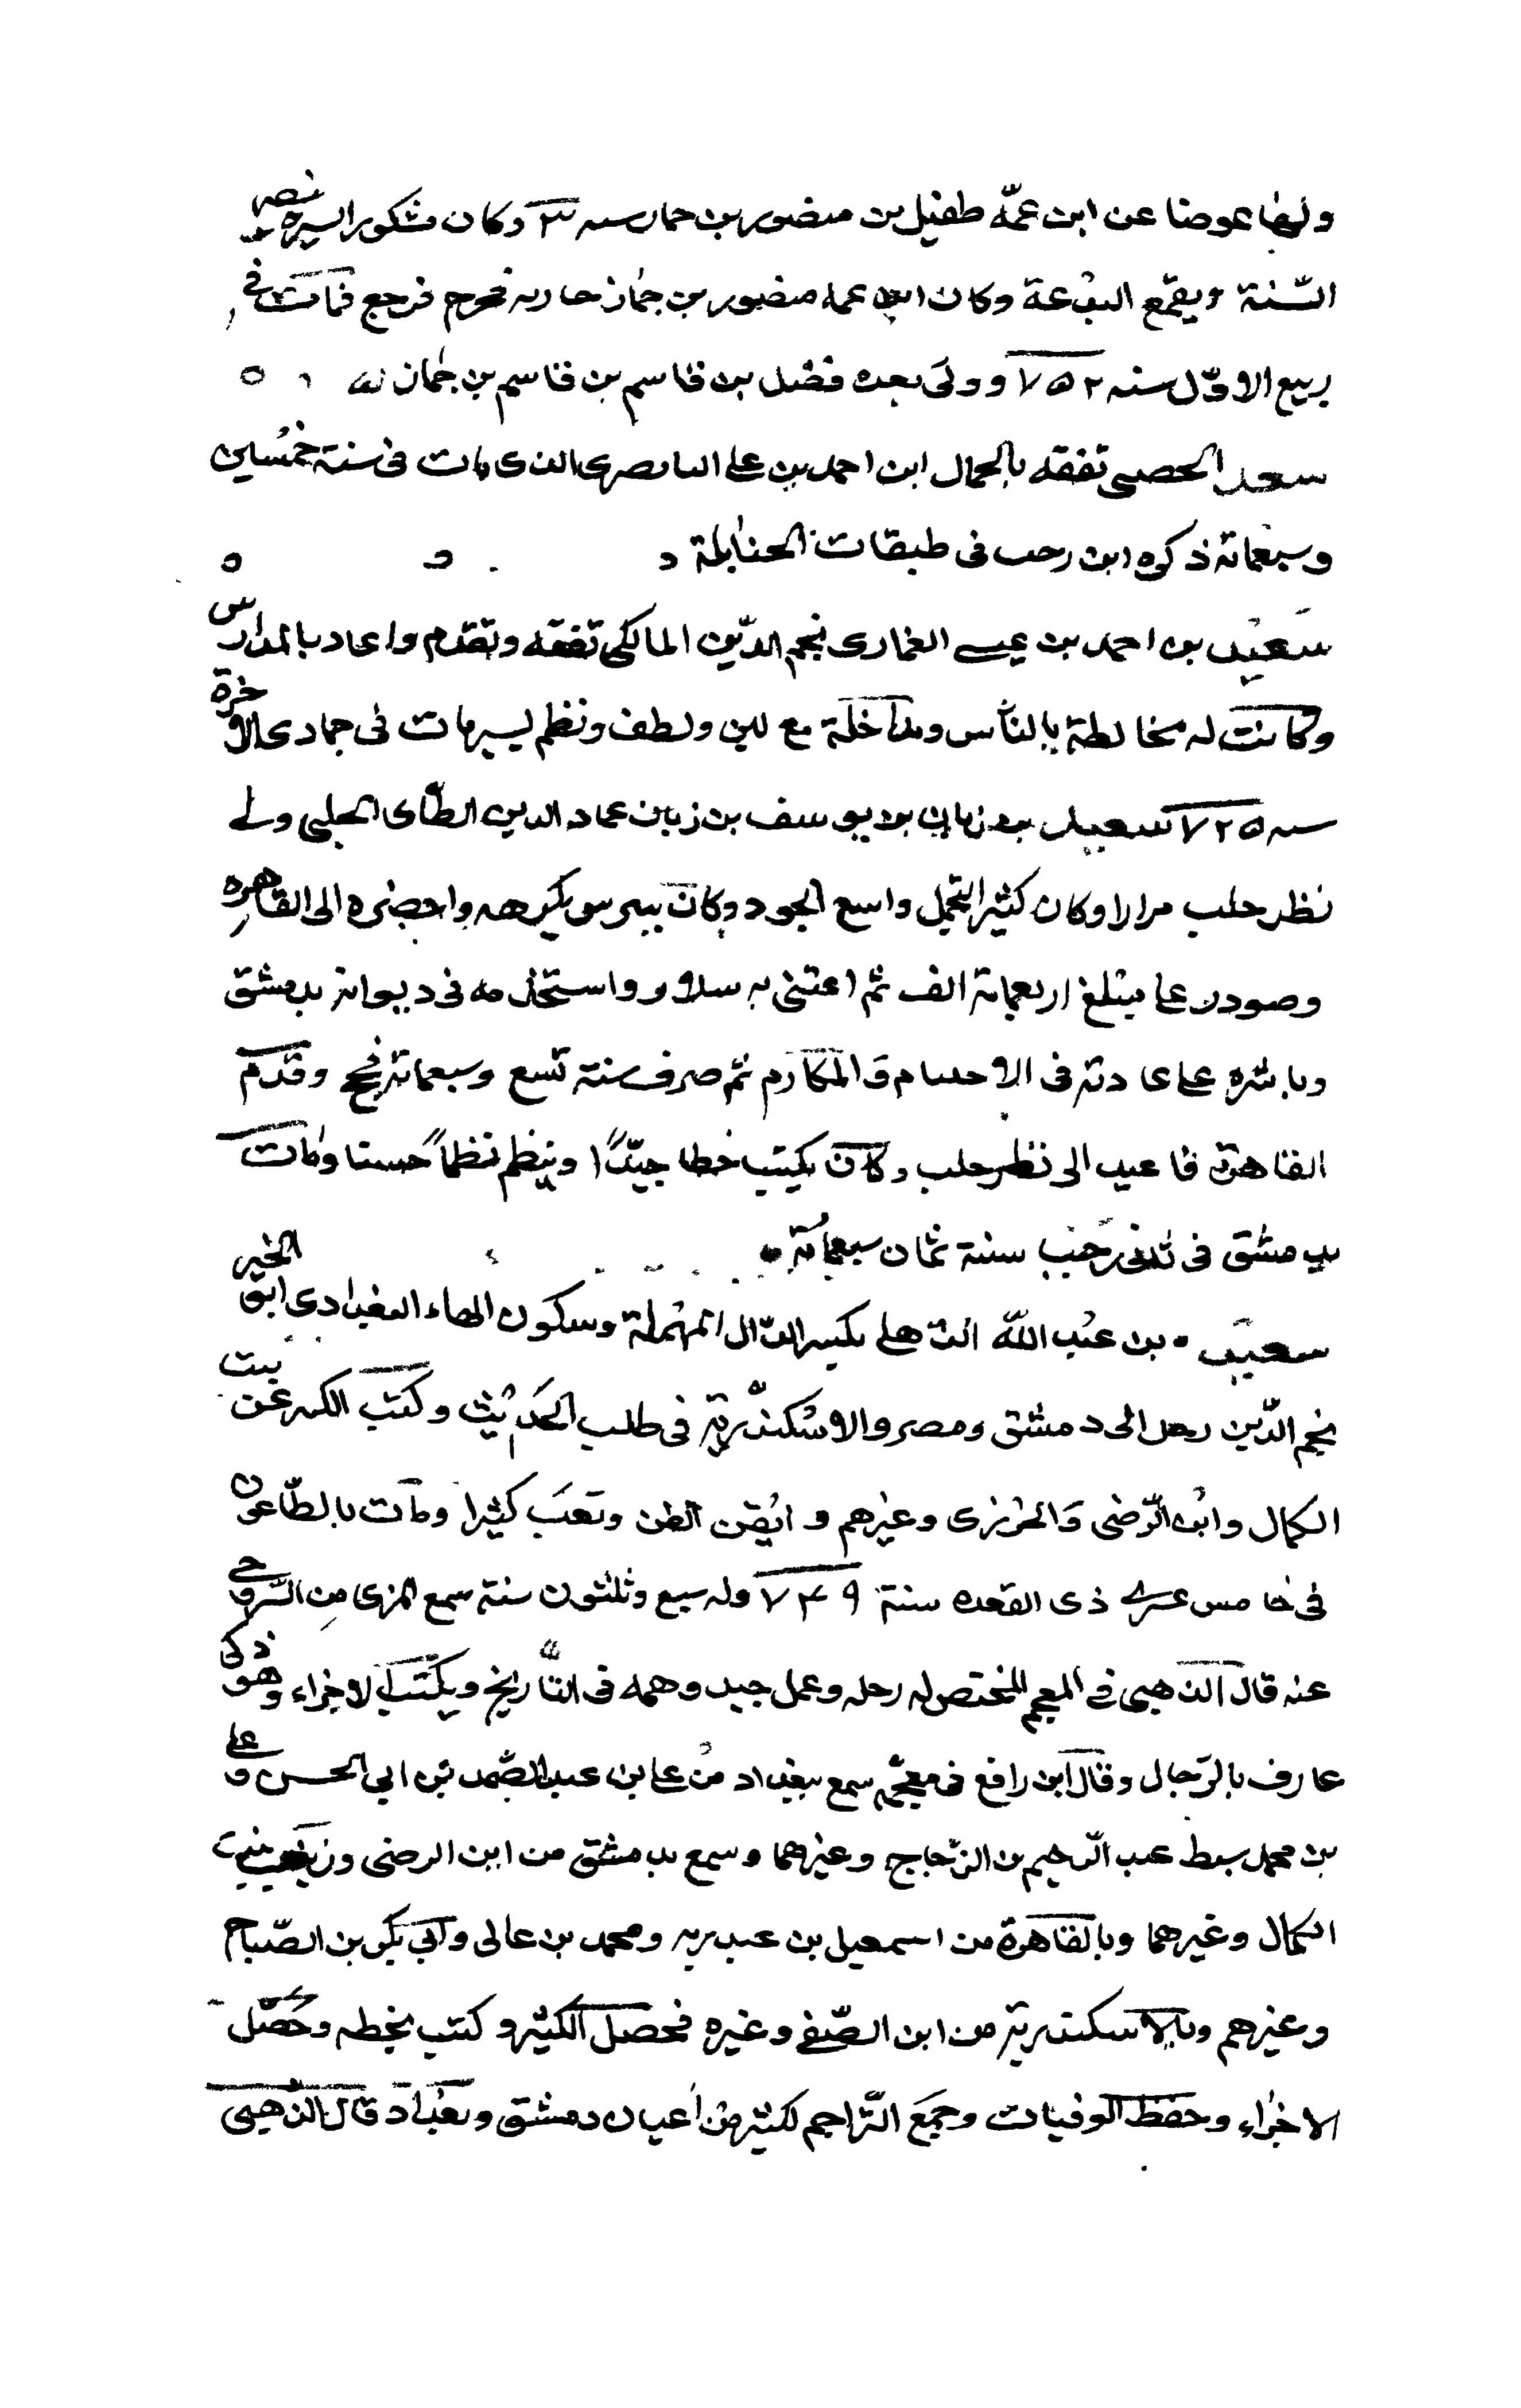 وليها عوضا عن ابن عمّه طفيل بن منصور بن جماز سنه وكان مشكور السيرة ينصر
السّنة ويقمع البدعة وكان ابن عمه منصور بن جماز حاربه فجرح فرجع فمات فى
ربيع الاوّل سنه ٧٥٢ وولى بعده فضل بن قاسم بن قاسم بن جماز
سعد الحصنى تفقه بالجمال ابن احمد بن على البابصرى الذى مات فى سنة خمسين
وسبعمائة ذكره ابن رجب فى طبقات الحنابلة
سَعيد بن احمد بن عيسى الغمارى نجم الدّين المالكى تفقه وتقدم واعاد بالمدارس
وكانت له مخالطة بالنّاس ومداخلة مع لين ولطف ونظم ليسير مات فى جمادى الاخرة
سنه ٧٢٥ سعيد بن زيان بن يوسف بن زيان عماد الدين الطّاى الحلبى ولى
نظر حلب مرارا وكان كثير التجمل واسع الجود وكان بيبرس يكرهه واحضره الى القاهره
وصودر على مبلغ اربعمائة الف ثم اعتنى به سلار واستخدمه فى ديوانه بدمشق
وباشره على عادته فى الاحسام والمكارم ثم صرف سنة تسع وسبعمائة فحج وقدم
القاهرة فاعيد الى نظر حلب وكان يكتب خطا جيّدًا وينظم نظماً حسنا ومات
بدمشق فى ثانى رجب سنة ثمان سبعمائة
سعيد بن عبد الله الدهلى بكسر الدّال المهملة وسكون الهاء البغدادى ابو الخير
نجم الدّين رحل الى دمشق ومصر والاسكندرية فى طلب الحديث وكتب الكثير عن بنت
الكمال وابن الرّضى والجزرى وغيرهم و اتقن الفن وتعب كثيرا ومات بالطّاعون
فى خامس عشرى ذى القعده سنة ٧٤٩ وله سبع وثلثون سنة سمع المزى من السّروجى
عنه قال الذهبى فى المعجم المختص له رحله وعمل جيد وهمه فى التّاريخ ويكتب الاجزاء وهو ذكى
عارف بالرّجال وقال ابن رافع فى معجمه سمع ببغداد من على بن عبد الصّمد بن ابى الحسن وعلى
بن محمد سبط عبد الرّحيم بن الزّجاج وغيرهما وسمع بدمشق من ابن الرضى وزينب بنت
الكمال وغيرهما وبالقاهرة من اسمعيل بن عبد ربه ومحمد بن عالى وابى بكر بن الصّباح
وغيرهم وبالاسكندرية من ابن الصّفى وغيره فحصل الكثير وكتب بخطه وحَصّل
الاجزاء وحفظ الوفيات وجمَع التّراجم لكثير من اعيان دمشق وبغداد قال الذّهبى